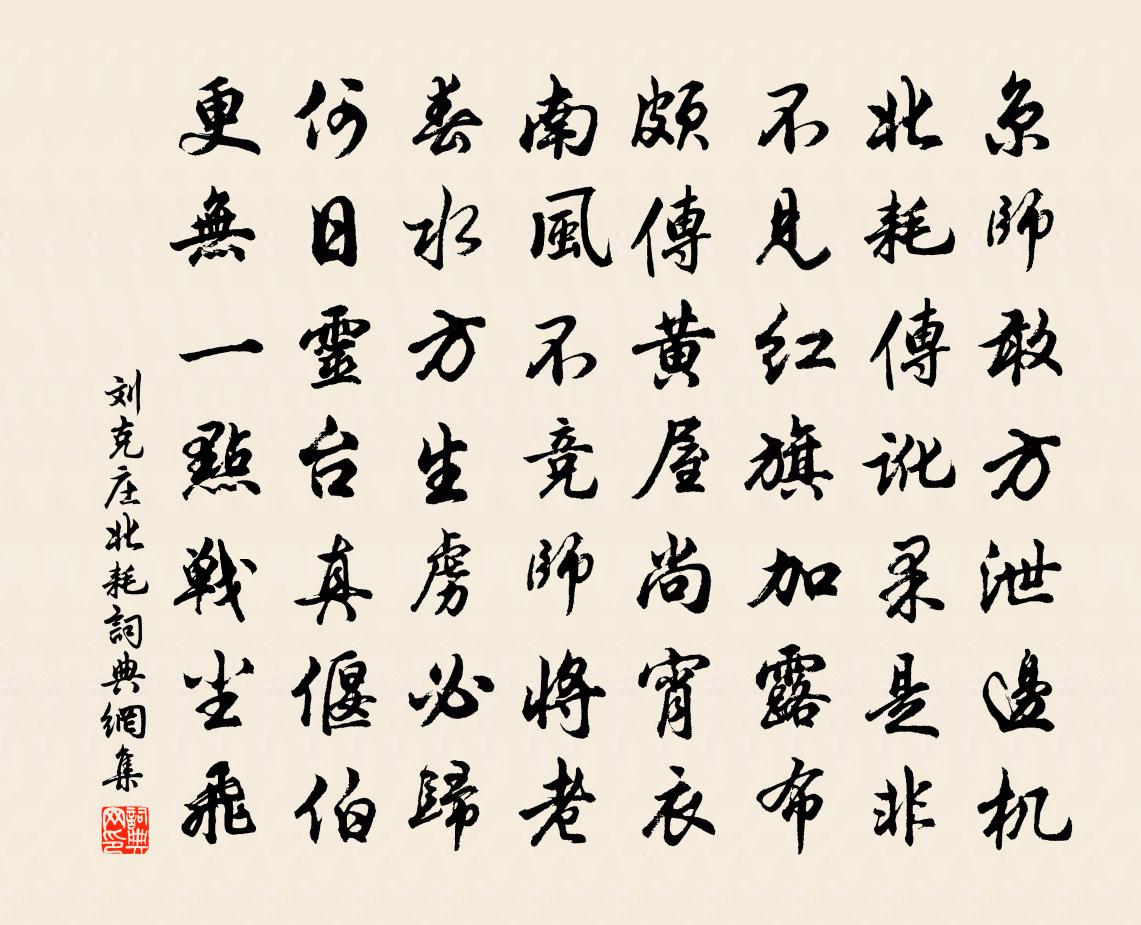 京師敢方泄邊机
北耗傳訛累是非
不見红旗加露布
頗傳黄屋尚宵衣
南風不竞師将老
春水方生虏必歸
何日靈台真偃伯
更無一點戦尘飛
刘克庄北耗詞典網集
詞典网印